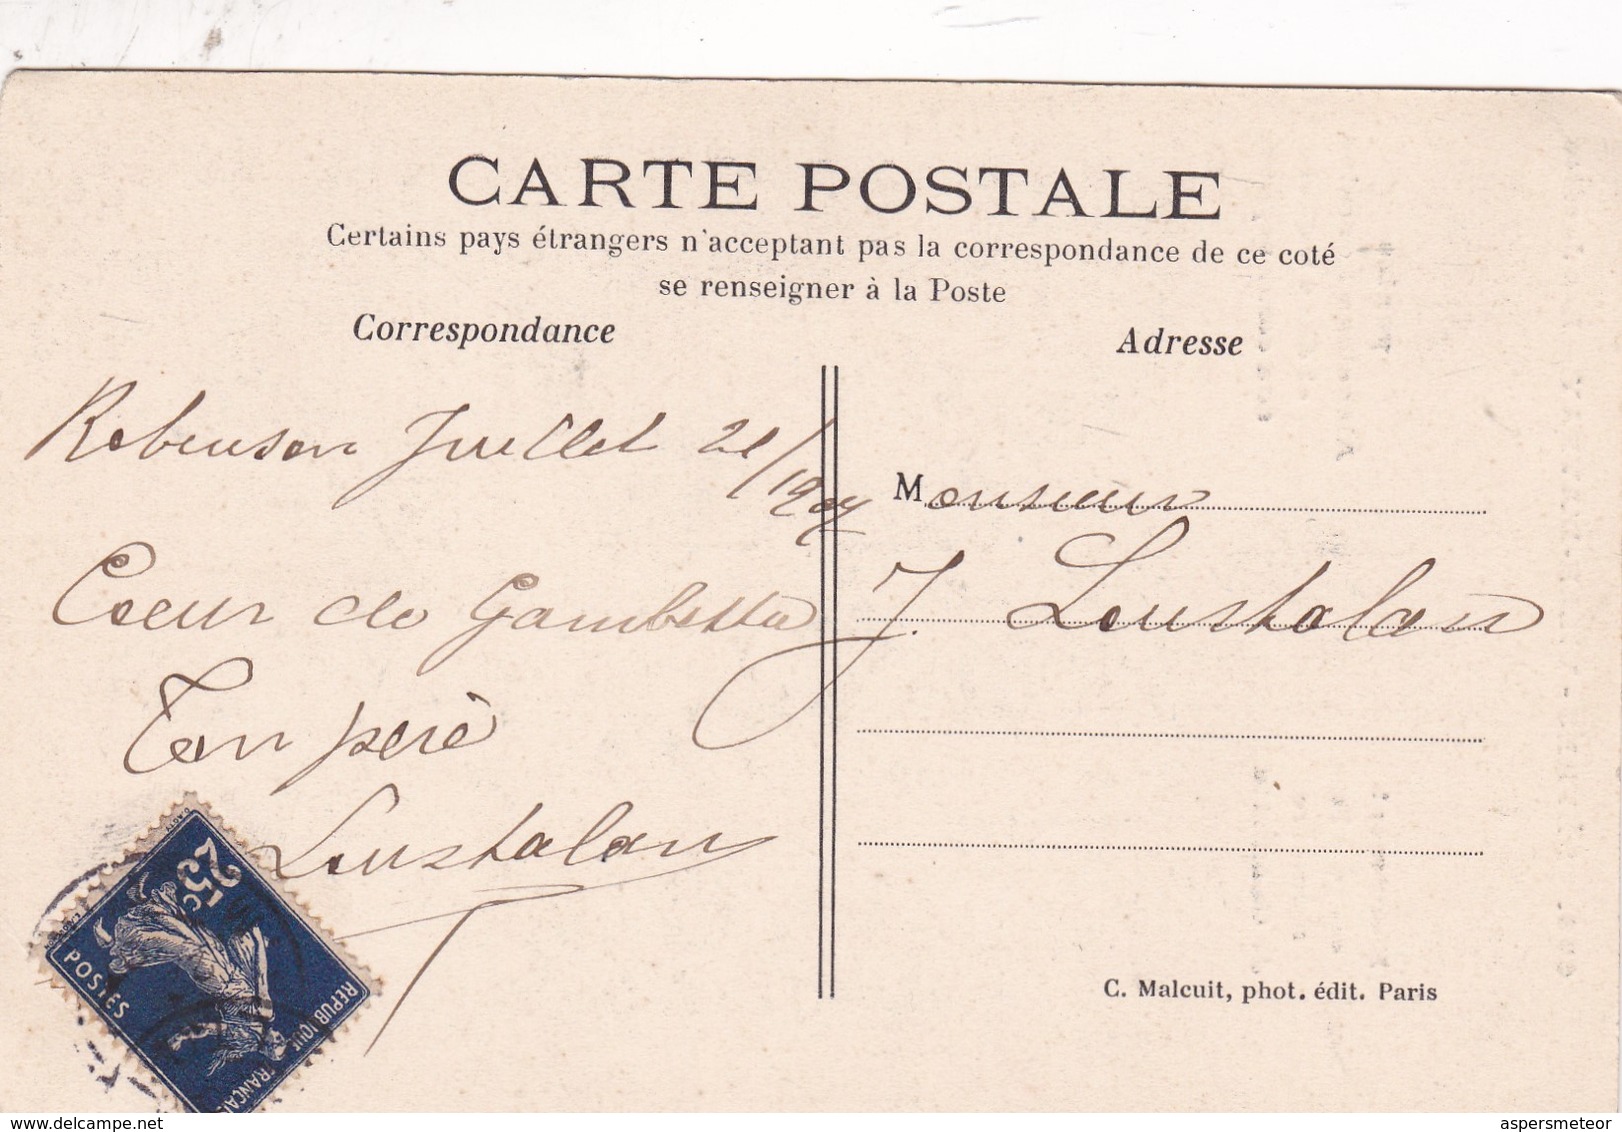 CARTE POSTALE
Certains pays étrangers n'acceptant pas la correspondance de ce coté
se renseigner à la Poste
Correspondance
Adresse
Robinson Juillet 21/1907
Coeur de Gambetta
Ton père
Loustalan
Monsieur
J. Loustalan
C. Malcuit, phot. édit. Paris
25c
POSTES
REPUBLIQUE FRANCAI
delcampe.net
aspersmeteor